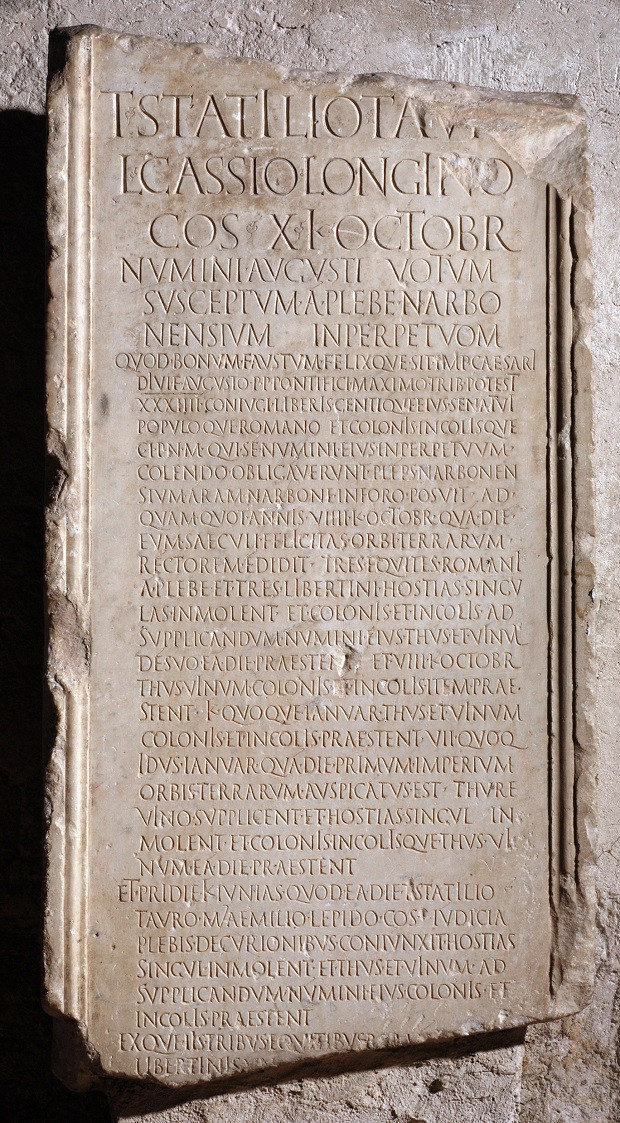 T·STATILIO·TAV
L·CASSIO·LONGINO
COS·X·K·OCTOBR
NVMINI·AVGVSTI VOTVM
SVSCEPTVM·A·PLEBE·NARBO
NENSIVM INPERPETVOM
QVOD·BONVM·FAVSTVM·FELIXQVE·SIT·IMP·CAESARI
DIVI·F·AVGVSTO·P·P·PONTIFICI·MAXIMO·TRIB·POTEST
XXXIIII·CONIVGI·LIBERIS·GENTIQVE·EIVS·SENATVI
POPVLOQVE·ROMANO·ET·COLONIS·INCOLISQVE
C·I·P·N·M·QVI·SE·NVMINI·EIVS·INPERPETVVM·
COLENDO·OBLIGAVERVNT·PLEPS·NARBONEN
SIVM·ARAM·NARBONE·INFORO·POSVIT·AD·
QVAM·QVOT·ANNIS·VIIII·K·OCTOBR·QVA·DIE·
EVM·SAECVLI·FELICITAS·ORBI·TERRARVM·
RECTOREM·EDIDIT·TRES·EQVITES·ROMANI
A·PLEBE·ET·TRES·LIBERTINI·HOSTIAS·SINGV
LAS·INMOLENT·ET·COLONIS·ET·INCOLIS·AD
SVPPLICANDVM·NVMINI·EIVS·THVS·ET·VINVM
DE·SVO·EA·DIE·PRAESTENT·ET·VIIII·K·OCTOBR
THVS·VINVM·COLONIS·ET·INCOLIS·ITEM·PRAE·
STENT·K·QVOQVE·IANVAR·THVS·ET·VINVM
COLONIS·ET·INCOLIS·PRAESTENT·VII·QVOQ
IDVS·IANVAR·QVA·DIE·PRIMVM·IMPERIVM
ORBIS·TERRARVM·AVSPICATVS·EST·THVRE
VINO·SVPPLICENT·ET·HOSTIAS·SINGVL·IN
MOLENT·ET·COLONIS·INCOLISQVE·THVS·VI·
NVM·EA·DIE·PRAESTENT
ET·PRIDIE·K·IVNIAS·QVOD·EA·DIE·T·STATILIO
TAVRO·M'·AEMILIO·LEPIDO·COS·IVDICIA
PLEBIS·DECVRIONIBVS·CONIVNXIT·HOSTIAS
SINGVL·INMOLENT·ET·THVS·ET·VINVM·AD
SVPPLICANDVM·NVMINI·EIVS·COLONIS·ET
INCOLIS·PRAESTENT
EXQVE·IIS·TRIBVS·EQVITIBVS·R
LIBERTINIS